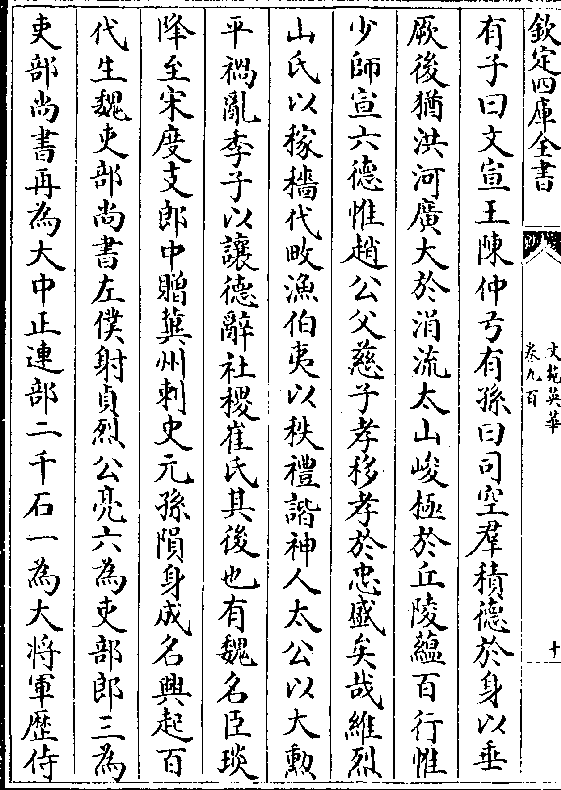 欽定四庫全書
文苑英華
卷九百
十
有子曰文宣王陳仲弓有孫曰司空羣積德於身以垂
厥後猶洪河廣大於涓流太山峻極於丘陵蘊百行惟
少師宣六德惟趙公父慈子孝移孝於忠盛矣哉維烈
山氏以稼穡代畋漁伯夷以秩禮諧神人太公以大勲
平禍亂季子以讓德辭社稷崔氏其後也有魏名臣琰
降至宋度支郎中贈冀州刺史元孫隕身成名興起百
代生魏吏部尚書左僕射貞烈公亮六為吏部郎三為
吏部尚書再為大中正連部二千石一為大將軍歷侍